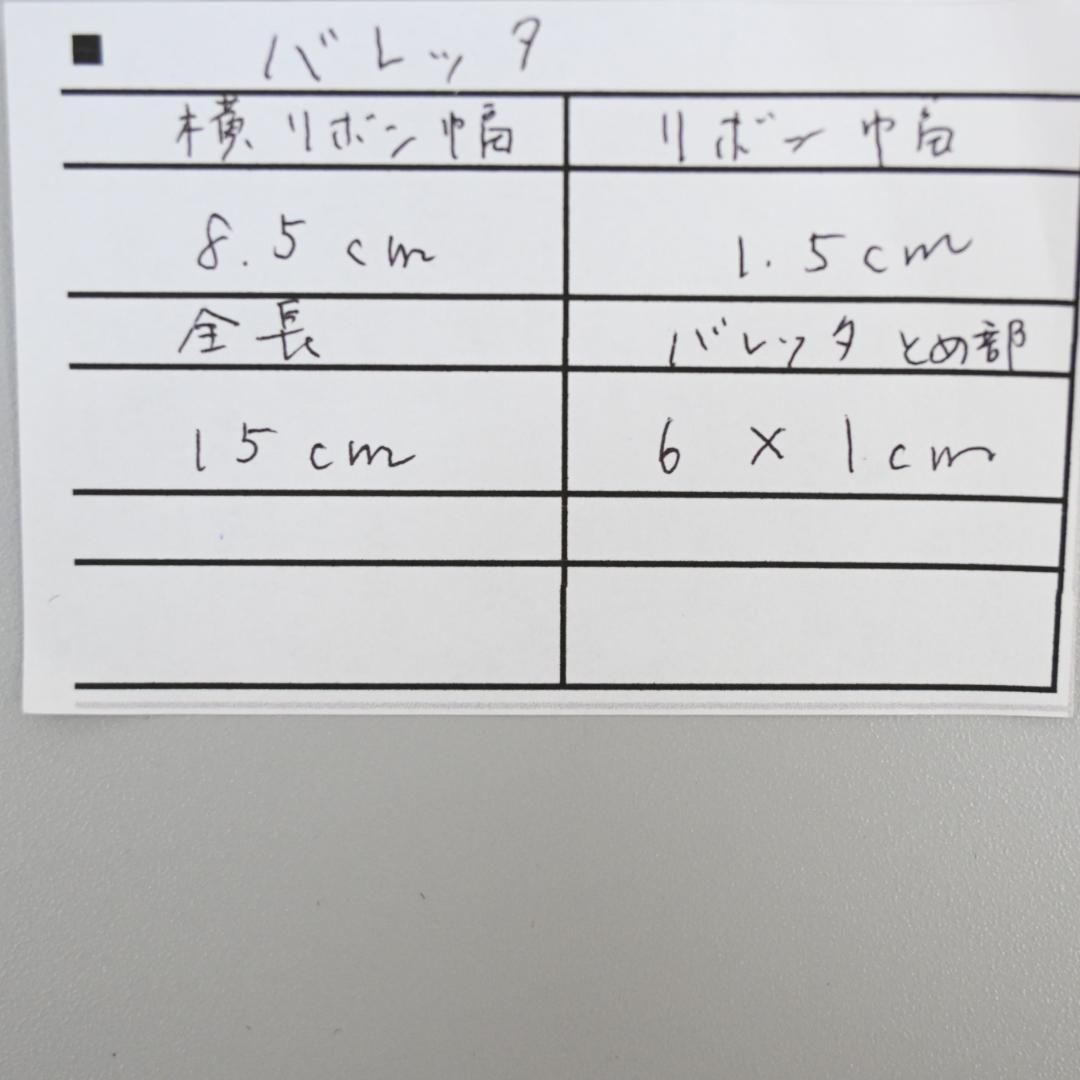 ■ バレッタ
横リボン幅 リボン巾畐
8.5cm 1.5cm
全長 バレッタとめ部
15cm 6×1cm